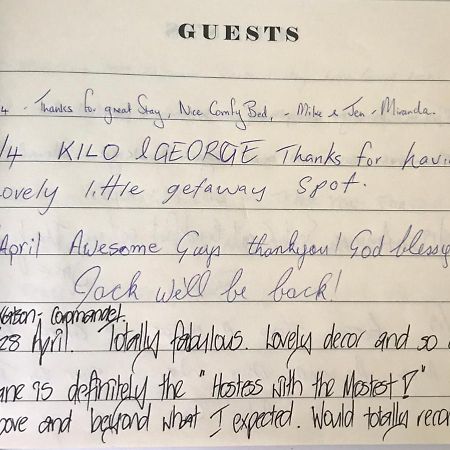 GUESTS
4 - Thanks for great Stay, Nice Comfy Bed, - Mike & Jen - Miranda.
/4 KILO & GEORGE Thanks for havi
ovely little getaway spot.
April Awesome Guys thankyou! God blessig
Jack we'll be back!
Coromandel.
28 April. Totally fabulous. Lovely decor and so
ane is definitely the "Hostess with the Mostest!"
bove and beyond what I expected. Would totally recom